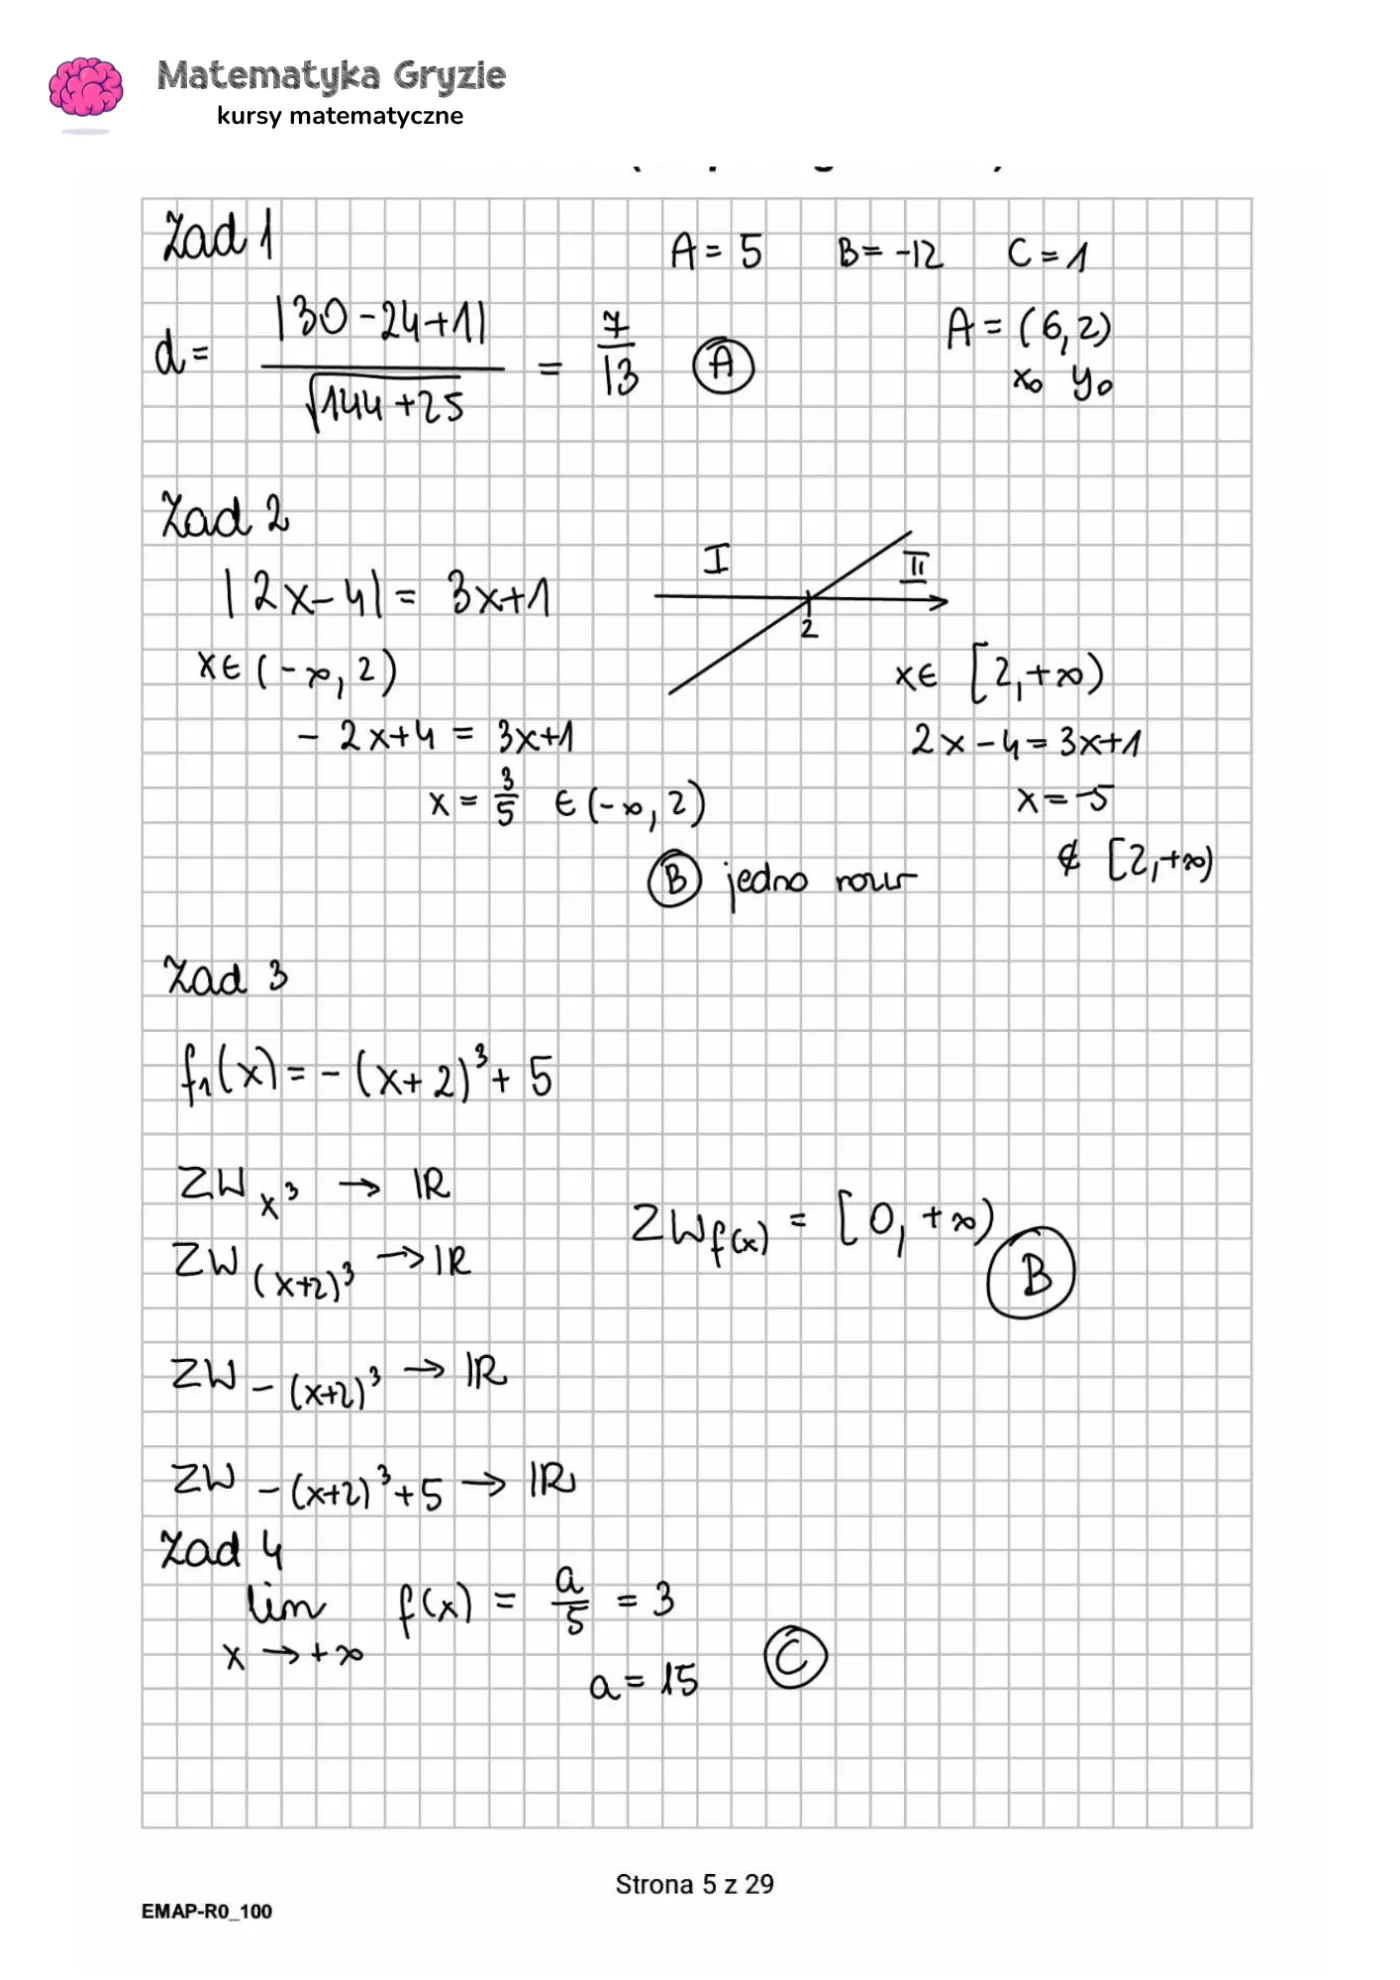 Matematyka Gryzie
kursy matematyczne
Zad 1
A = 5 B = -12 C = 1
d = |30 - 24 + 1| / √144 + 25 = 7/13 (A)
A = (6, 2)
x₀ y₀
Zad 2
|2x - 4| = 3x + 1
I II
2
x ∈ (-∞, 2)
x ∈ [2, +∞)
- 2x + 4 = 3x + 1
2x - 4 = 3x + 1
x = 3/5 ∈ (-∞, 2)
x = -5
∉ [2, +∞)
(B) jedno rozw
Zad 3
f₁(x) = - (x + 2)³ + 5
ZW x³ → IR
ZW f(x) = [0, +∞)
(B)
ZW (x+2)³ → IR
ZW -(x+2)³ → IR
ZW -(x+2)³+5 → IR
Zad 4
lim f(x) = a/5 = 3
x → +∞
a = 15 (C)
Strona 5 z 29
EMAP-R0_100